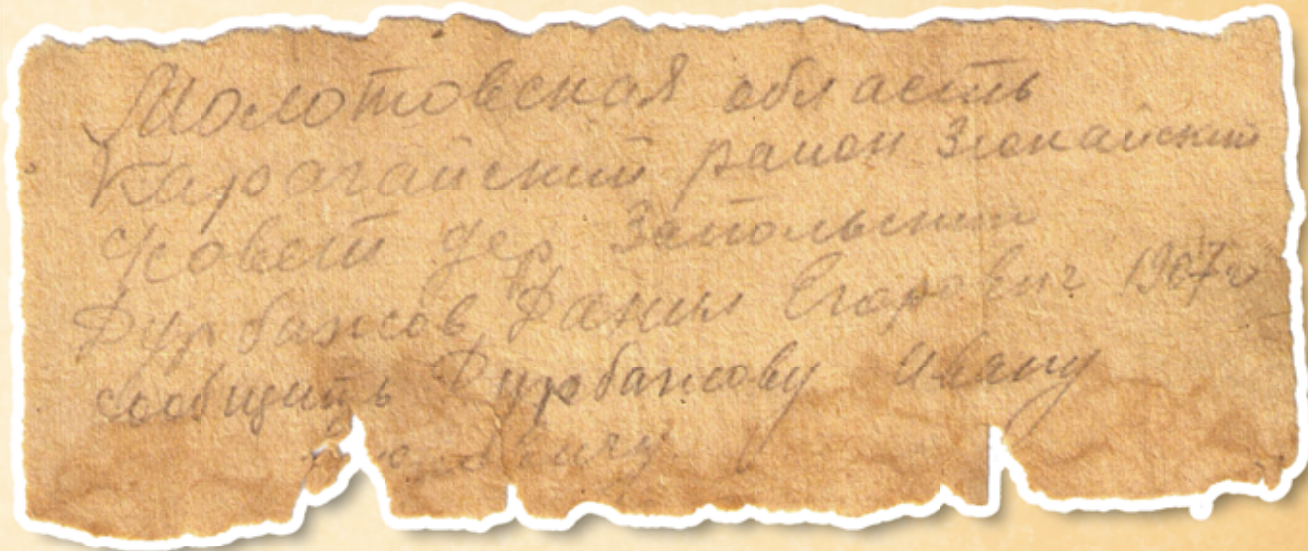 Молотовская область
Карагайский район Зюкайский
Совет дер Запольский
Дурбажов Данил Егорович 1907 г
сообщить Дурбажову Ивану